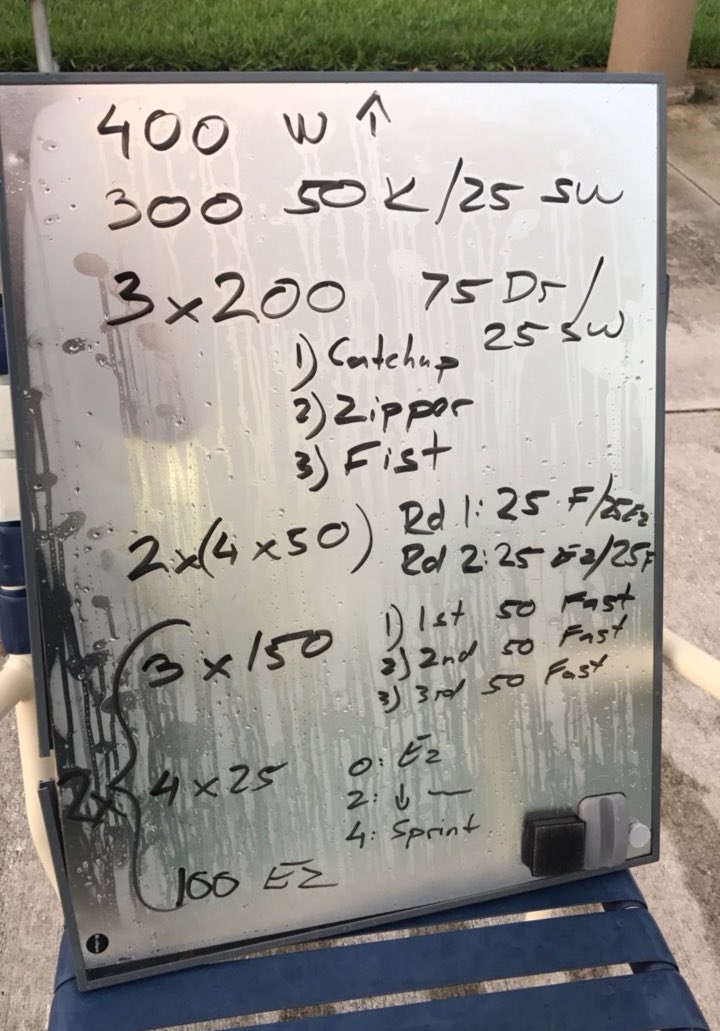 400 W ↑
300 50 K/25 SW
3 x 200 75 Dr/
25 SW
1) Catchup
2) Zipper
3) Fist
2x(4 x 50) Rd 1: 25 F/25Ez
Rd 2: 25 Ez/25F
3 x 150 1) 1st 50 Fast
2) 2nd 50 Fast
3) 3rd 50 Fast
2x
4 x 25 0: Ez
2: ↓ —
4: Sprint
100 EZ